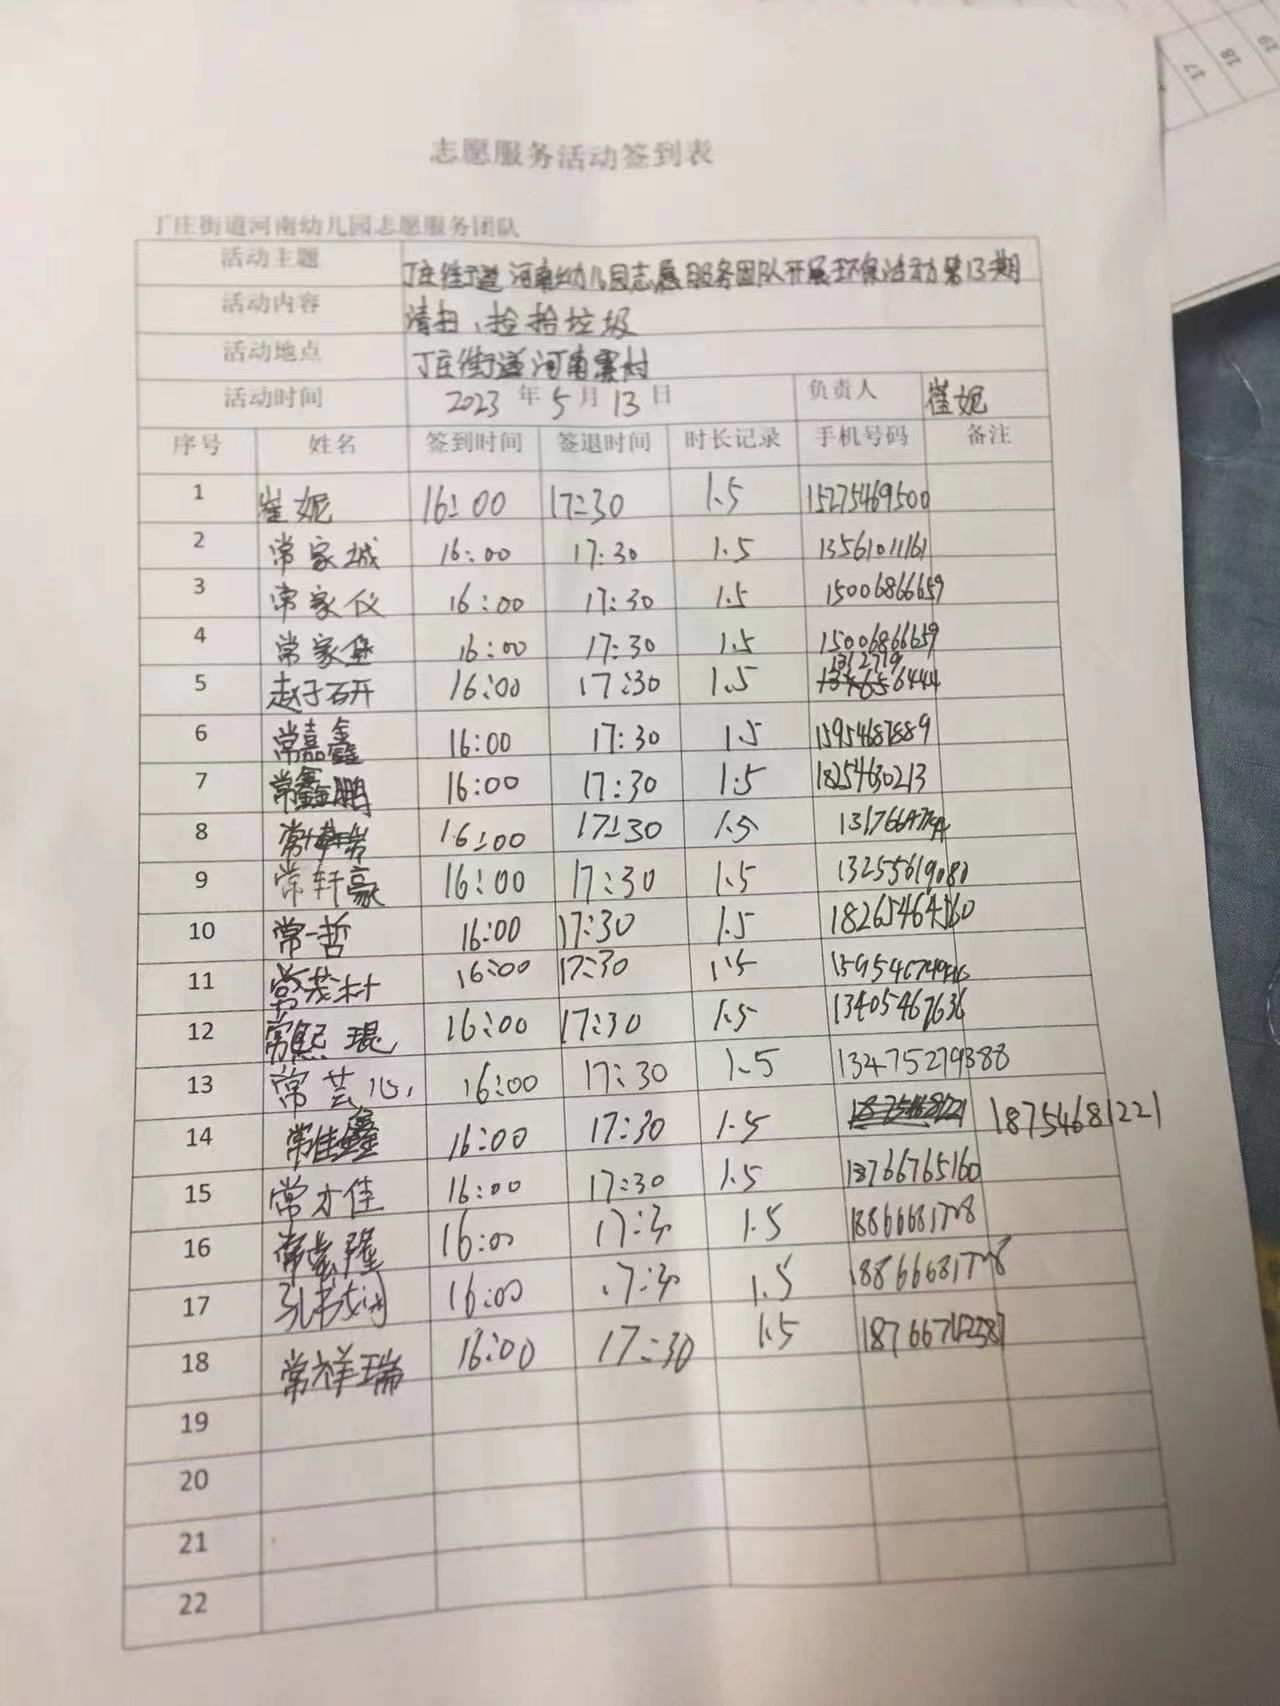 志愿服务活动签到表
丁庄街道河南幼儿园志愿服务团队
活动主题 丁庄街道河南幼儿园志愿服务团队开展环保活动第13期
活动内容 清扫、捡拾垃圾
活动地点 丁庄街道河南寨村
活动时间 2023年5月13日 负责人 崔妮
序号 姓名 签到时间 签退时间 时长记录 手机号码 备注
1 崔妮 16:00 17:30 1.5 15275469500
2 常家城 16:00 17:30 1.5 13561011161
3 常家仪 16:00 17:30 1.5 15006866659
4 常家堡 16:00 17:30 1.5 15006866659
5 赵子研 16:00 17:30 1.5
6 常嘉鑫 16:00 17:30 1.5 15954687889
7 常鑫鹏 16:00 17:30 1.5 18254630213
8 16:00 17:30 1.5
9 常轩豪 16:00 17:30 1.5 13255619080
10 常一哲 16:00 17:30 1.5
11 常茂村 16:00 17:30 1.5
12 常熙琨 16:00 17:30 1.5 13405467636
13 常芸心 16:00 17:30 1.5 13475279388
14 常佳鑫 16:00 17:30 1.5 18754681221
15 常才佳 16:00 17:30 1.5
16 16:00 17:30 1.5
17 16:00 17:30 1.5
18 常祥瑞 16:00 17:30 1.5
19
20
21
22
17
18
19